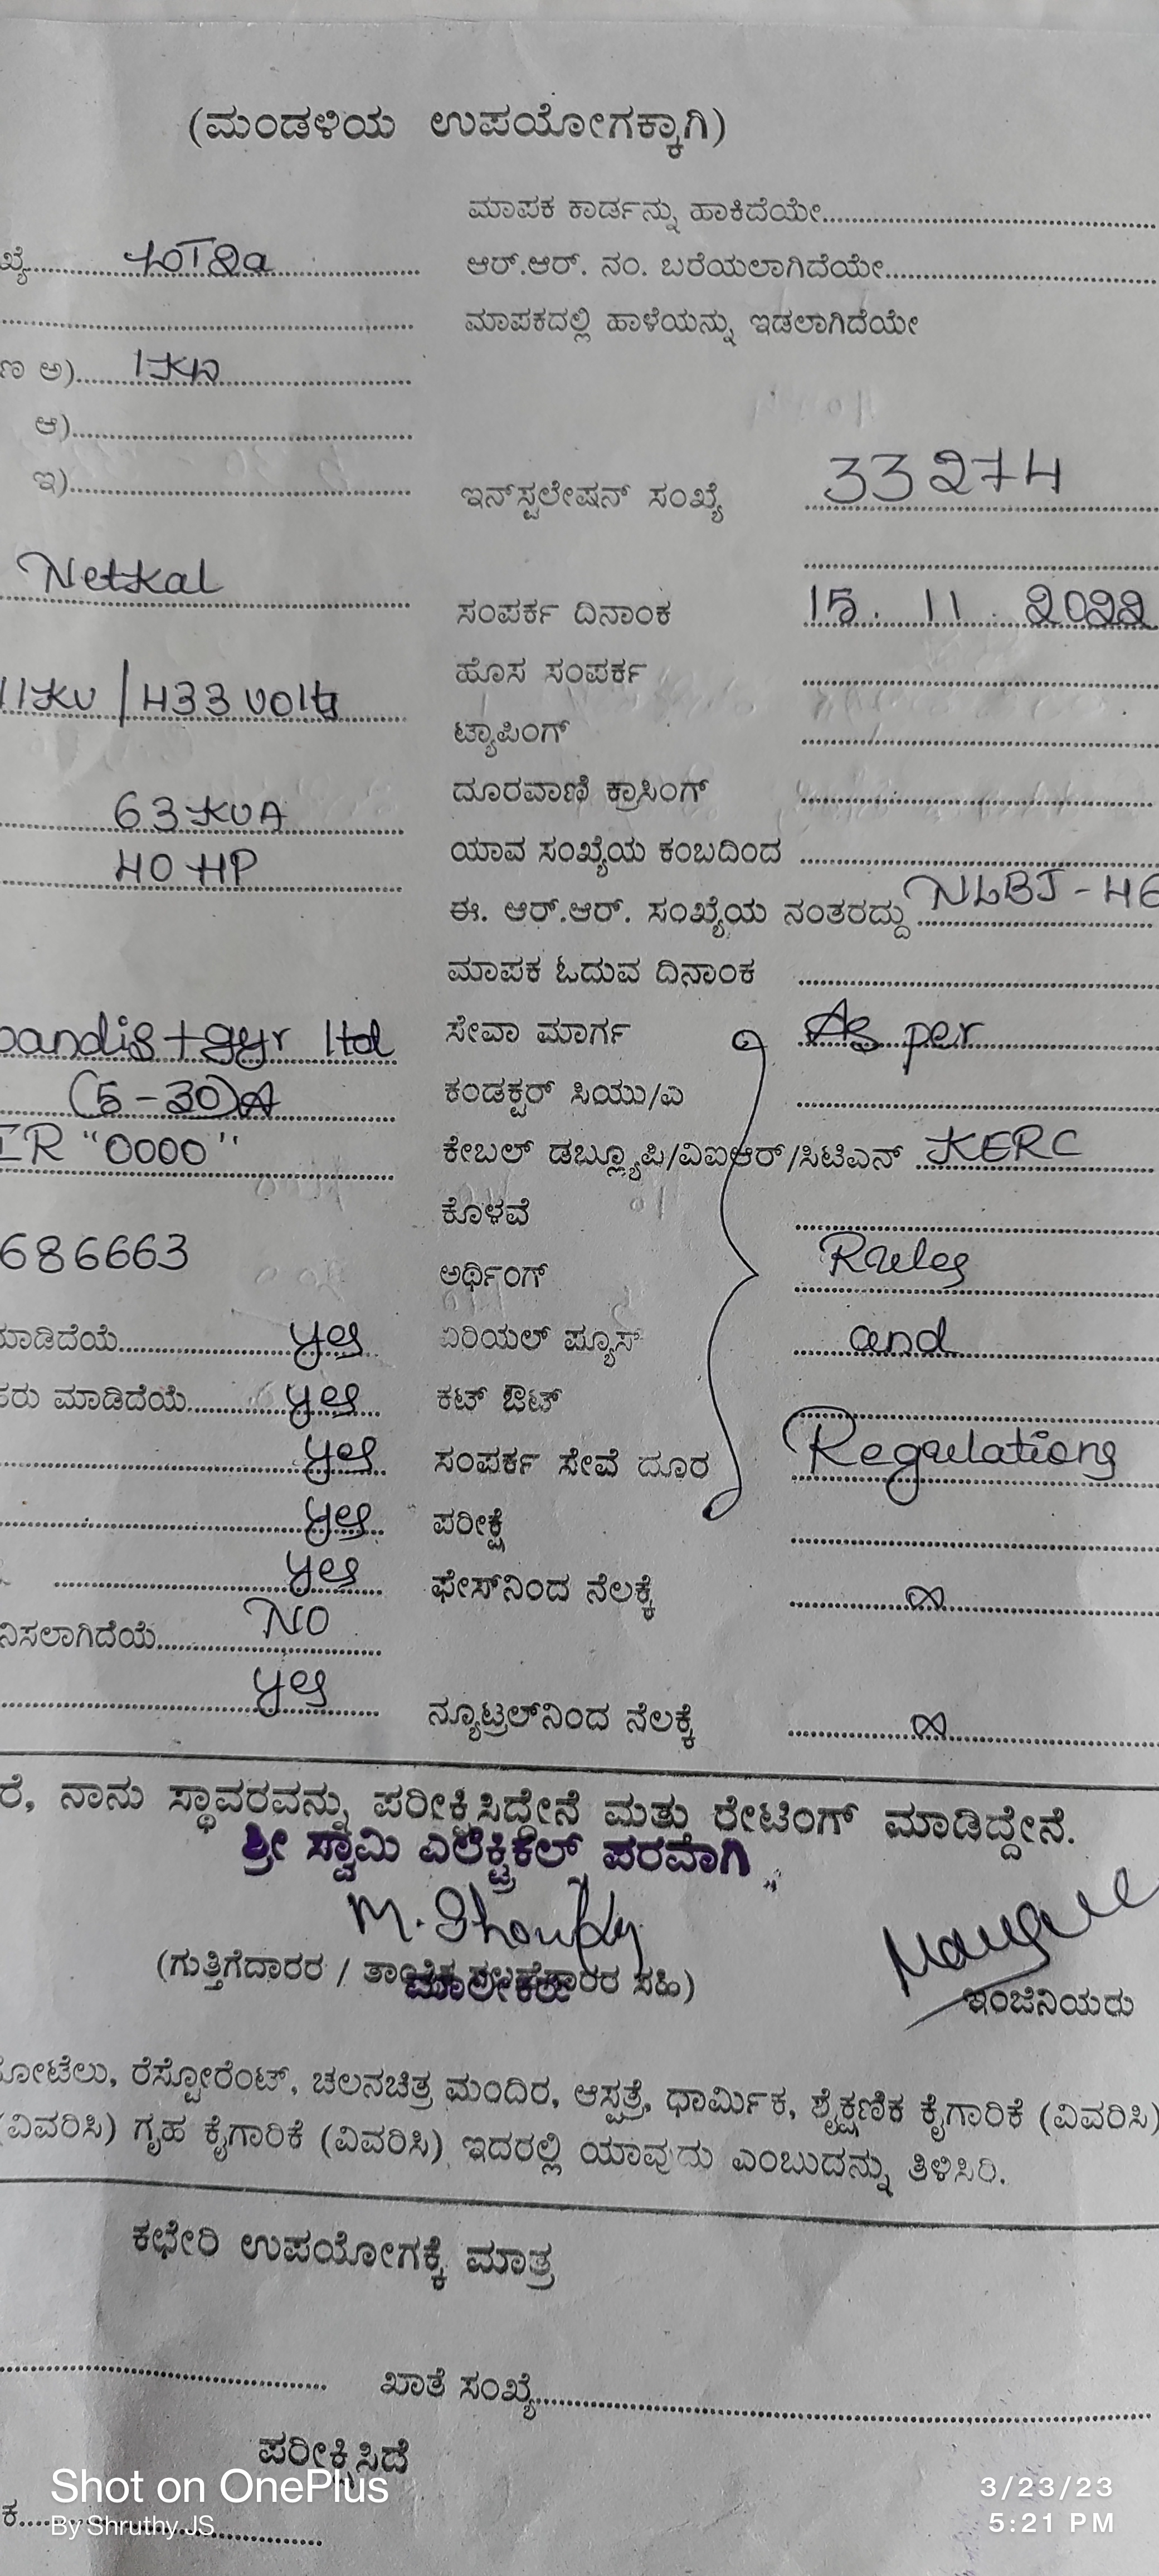 (ಮಂಡಳಿಯ ಉಪಯೋಗಕ್ಕಾಗಿ)
ಮಾಪಕ ಕಾರ್ಡನ್ನು ಹಾಕಿದೆಯೇ
ಖ್ಯೆ
ಆರ್.ಆರ್. ನಂ. ಬರೆಯಲಾಗಿದೆಯೇ
ಮಾಪಕದಲ್ಲಿ ಹಾಳೆಯನ್ನು ಇಡಲಾಗಿದೆಯೇ
ಣ ಅ)
ಆ)
ಇ)
ಇನ್‌ಸ್ಟಲೇಷನ್ ಸಂಖ್ಯೆ 33274
Netkal
ಸಂಪರ್ಕ ದಿನಾಂಕ 15. 11. 2022
ಹೊಸ ಸಂಪರ್ಕ
11KV / 433 volts
ಟ್ಯಾಪಿಂಗ್
ದೂರವಾಣಿ ಕ್ರಾಸಿಂಗ್
63 KVA
ಯಾವ ಸಂಖ್ಯೆಯ ಕಂಬದಿಂದ
40 HP
ಈ. ಆರ್.ಆರ್. ಸಂಖ್ಯೆಯ ನಂತರದ್ದು NLBJ - 46
ಮಾಪಕ ಓದುವ ದಿನಾಂಕ
landis+gyr ltd ಸೇವಾ ಮಾರ್ಗ As per
(5-30)A ಕಂಡಕ್ಟರ್ ಸಿಯು/ಎ
IR "0000" ಕೇಬಲ್ ಡಬ್ಲ್ಯೂಪಿ/ವಿಐಆರ್/ಸಿಟಿಎನ್ KERC
ಕೊಳವೆ
686663 ಅರ್ಥಿಂಗ್ Rules
ಮಾಡಿದೆಯೆ yes ಏರಿಯಲ್ ಪ್ಯೂಸ್ and
ಕರು ಮಾಡಿದೆಯೆ yes ಕಟ್ ಔಟ್
yes ಸಂಪರ್ಕ ಸೇವೆ ದೂರ Regulations
yes ಪರೀಕ್ಷೆ
yes ಫೇಸ್‌ನಿಂದ ನೆಲಕ್ಕೆ ∞
ನಿಸಲಾಗಿದೆಯೆ NO
yes ನ್ಯೂಟ್ರಲ್‌ನಿಂದ ನೆಲಕ್ಕೆ ∞
ರೆ, ನಾನು ಸ್ಥಾವರವನ್ನು ಪರೀಕ್ಷಿಸಿದ್ದೇನೆ ಮತ್ತು ರೇಟಿಂಗ್ ಮಾಡಿದ್ದೇನೆ.
ಶ್ರೀ ಸ್ವಾಮಿ ಎಲೆಕ್ಟ್ರಿಕಲ್ ಪರವಾಗಿ
(ಗುತ್ತಿಗೆದಾರರ / ಸಹಿ)
ಮಾಲೀಕರು
ಇಂಜಿನಿಯರು
ಹೋಟೆಲು, ರೆಸ್ಟೋರೆಂಟ್, ಚಲನಚಿತ್ರ ಮಂದಿರ, ಆಸ್ಪತ್ರೆ, ಧಾರ್ಮಿಕ, ಶೈಕ್ಷಣಿಕ ಕೈಗಾರಿಕೆ (ವಿವರಿಸಿ)
(ವಿವರಿಸಿ) ಗೃಹ ಕೈಗಾರಿಕೆ (ವಿವರಿಸಿ) ಇದರಲ್ಲಿ ಯಾವುದು ಎಂಬುದನ್ನು ತಿಳಿಸಿರಿ.
ಕಛೇರಿ ಉಪಯೋಗಕ್ಕೆ ಮಾತ್ರ
ಖಾತೆ ಸಂಖ್ಯೆ
ಪರೀಕ್ಷಿಸಿದೆ
ಕ
Shot on OnePlus
By Shruthy JS
3/23/23
5:21 PM